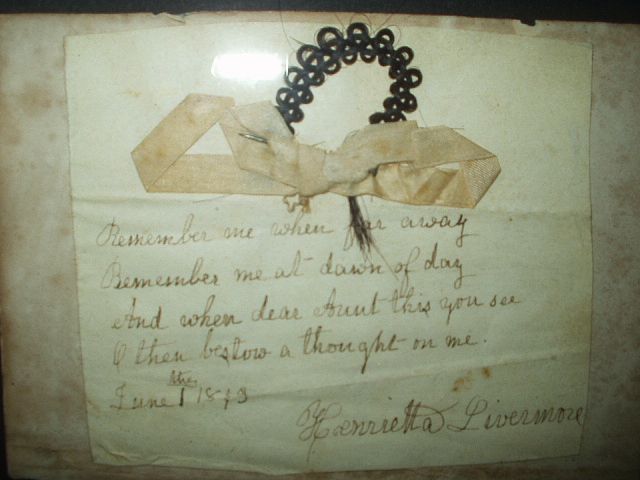 Remember me when far away
Remember me at dawn of day
And when dear Aunt this you see
O then bestow a thought on me.
June the 1 1873
Henrietta Livermore